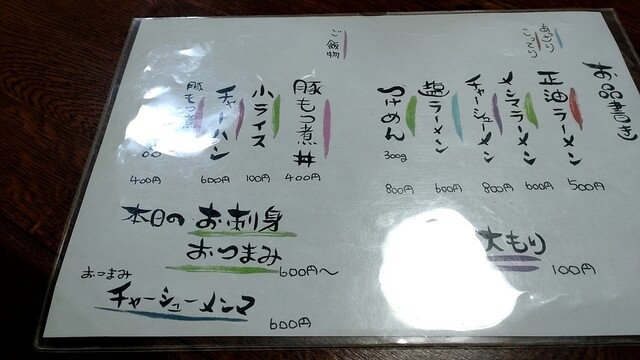 お品書き
あっさり
こってり
正油ラーメン
500円
メンマラーメン
600円
チャーシューメン
800円
塩ラーメン
600円
つけめん
300g
800円
大もり
100円
ご飯物
豚もつ煮丼
400円
小ライス
100円
チャーハン
600円
豚もつ煮
400円
本日のお刺身
おつまみ
600円～
おつまみ
チャーシューメンマ
600円